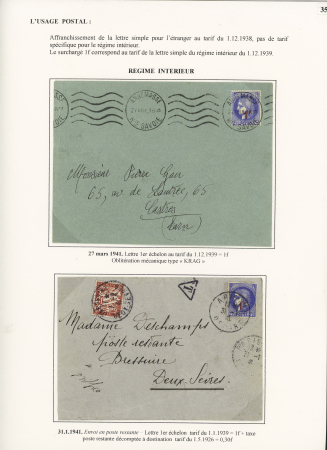 35
L'USAGE POSTAL :
Affranchissement de la lettre simple pour l'étranger au tarif du 1.12.1938, pas de tarif
spécifique pour le régime intérieur.
Le surchargé 1f correspond au tarif de la lettre simple du régime intérieur du 1.12.1939.
REGIME INTERIEUR
Monsieur Pierre
65, rue de 65
Castres
(Tarn)
27 mars 1941. Lettre 1er échelon au tarif du 1.12.1939 = 1f
Oblitération mécanique type « KRAG »
T
Madame Deschamps
poste restante
Bressuire
Deux-Sèvres
31.1.1941. Envoi en poste restante – Lettre 1er échelon tarif du 1.1.1939 = 1f + taxe
poste restante décomptée à destination tarif du 1.5.1926 = 0,30f